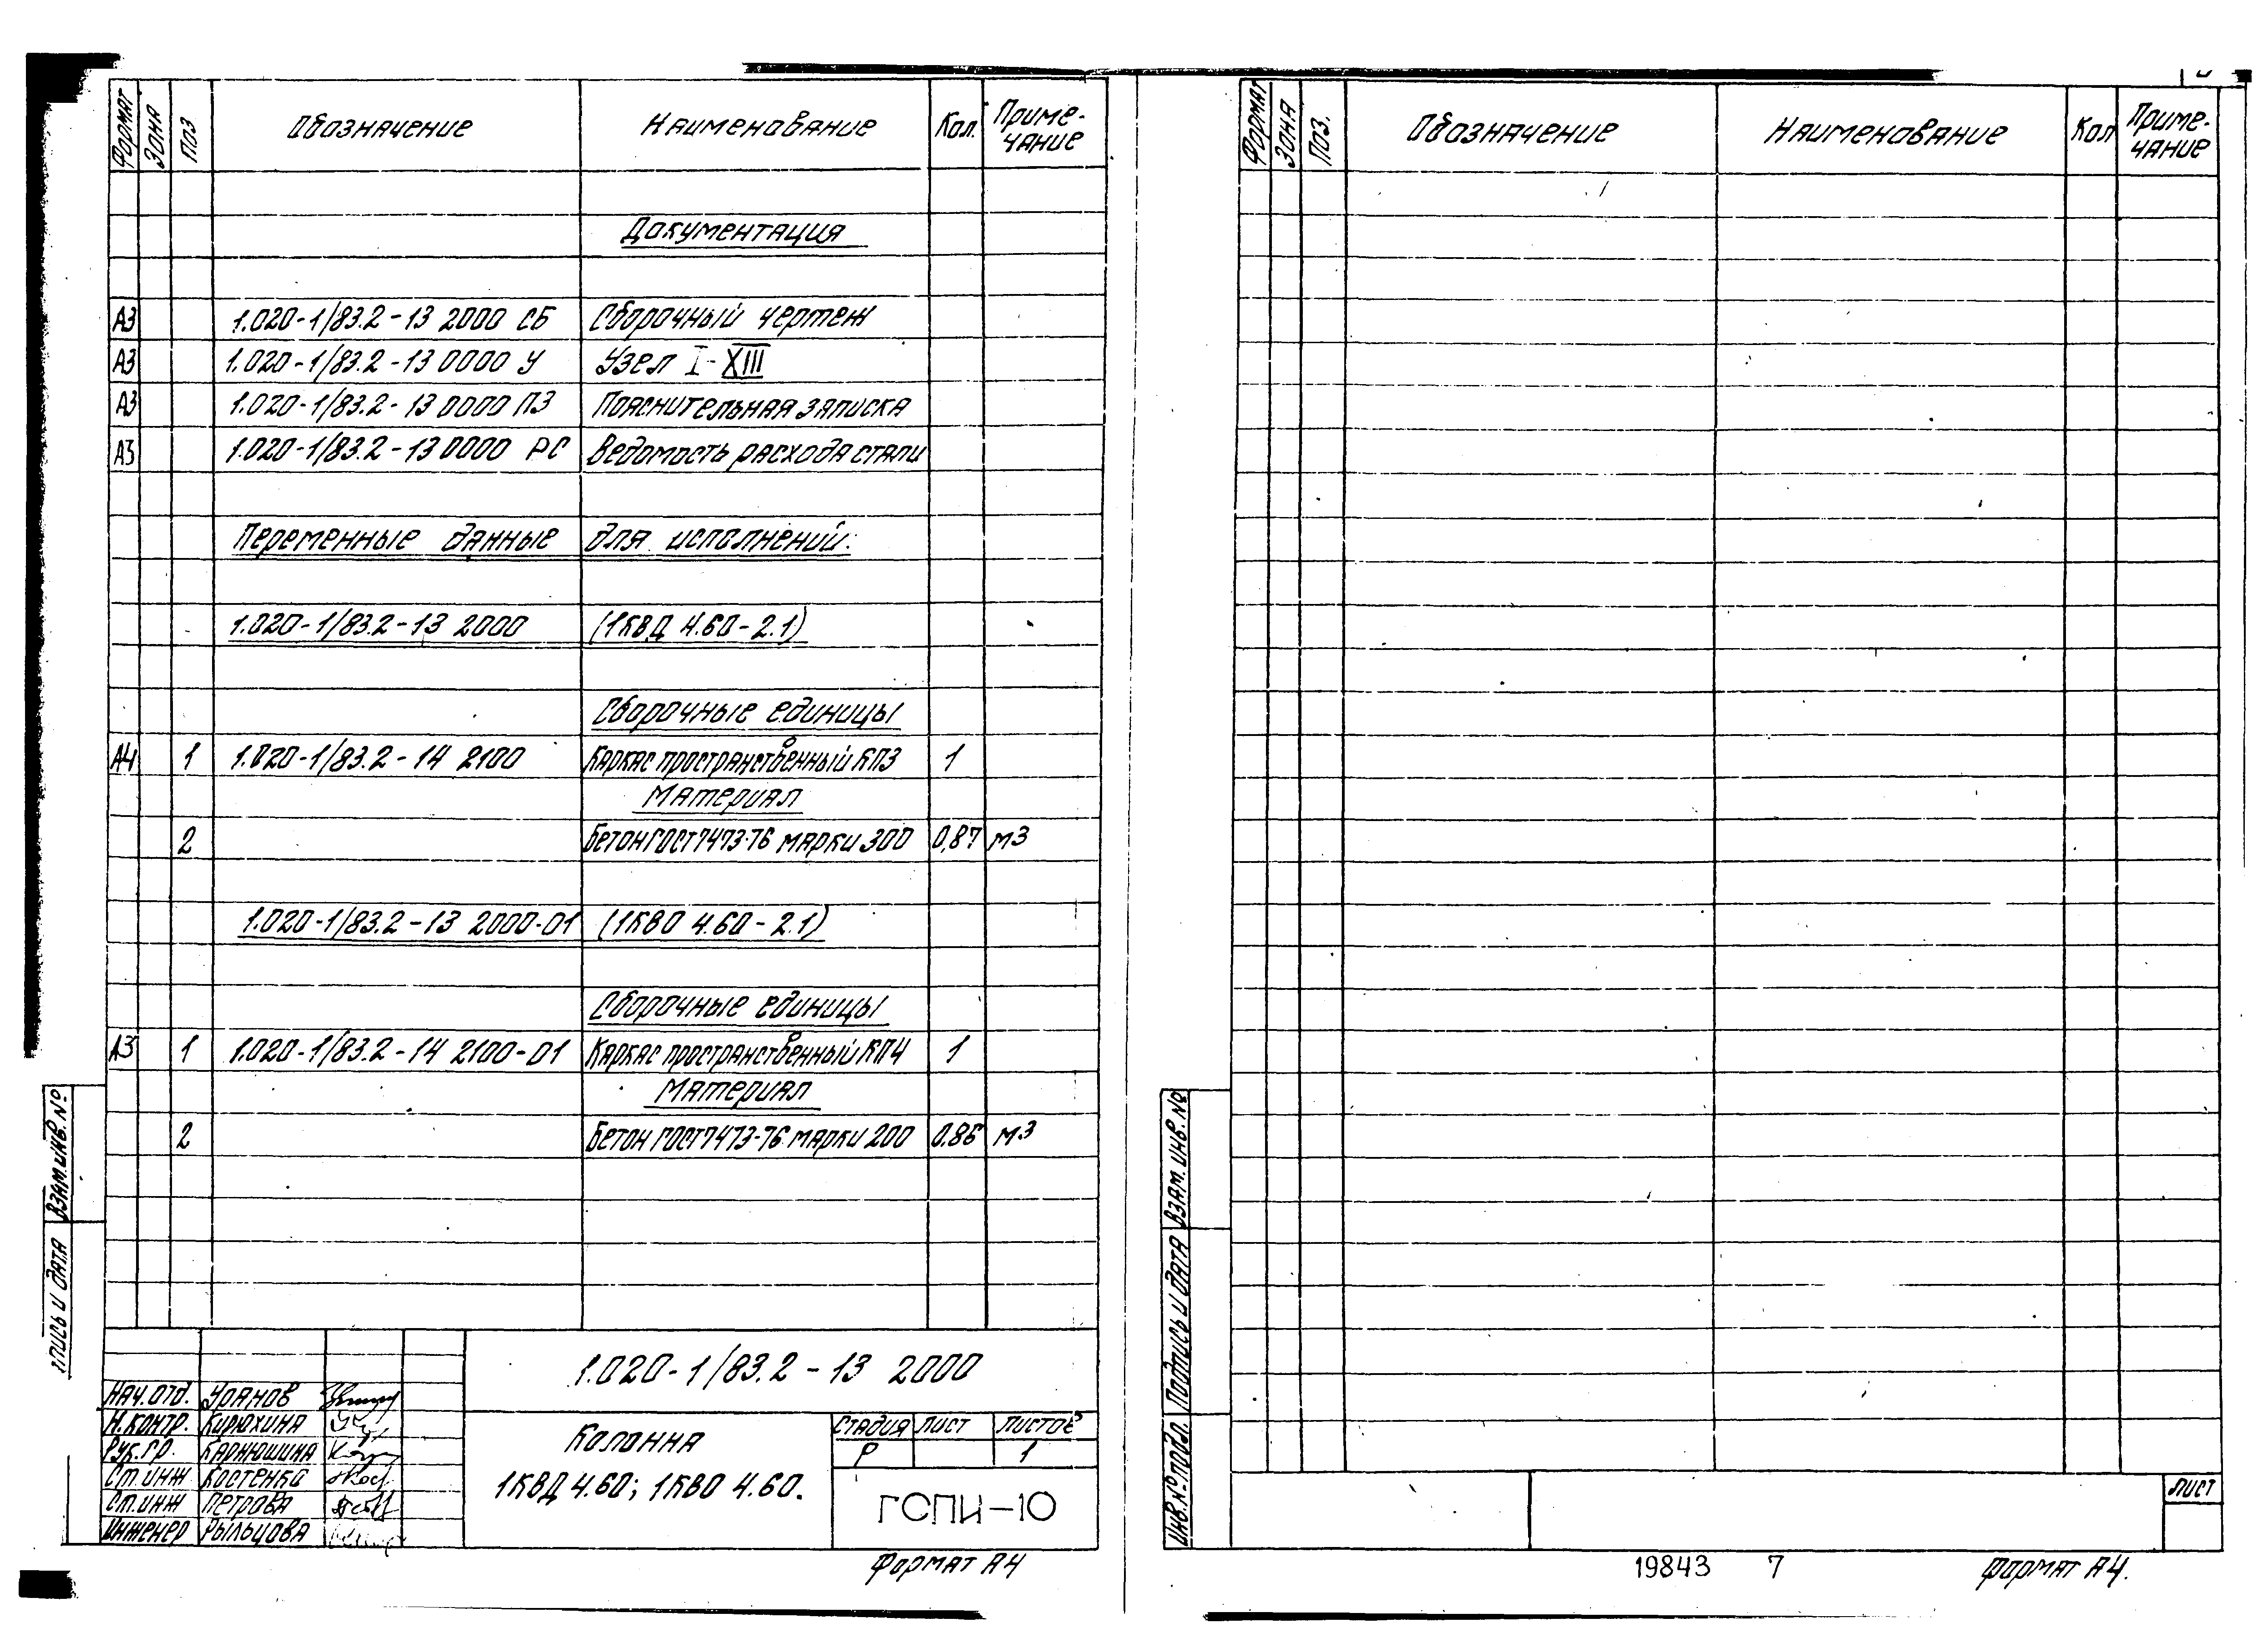 Формат Зона Поз Обозначение Наименование Кол. Приме-чание
Документация
А3 1.020-1/83.2-13 2000 СБ Сборочный чертеж
А3 1.020-1/83.2-13 0000 У Узел I-XIII
А3 1.020-1/83.2-13 0000 ПЗ Пояснительная записка
А3 1.020-1/83.2-13 0000 РС Ведомость расхода стали
Переменные данные для исполнений:
1.020-1/83.2-13 2000 (1КВД 4.60-2.1)
Сборочные единицы
А4 1 1.020-1/83.2-14 2100 Каркас пространственный КП3 1
Материал
2 Бетон ГОСТ 7473-76 марки 300 0,87 м3
1.020-1/83.2-13 2000-01 (1КВО 4.60-2.1)
Сборочные единицы
А3 1 1.020-1/83.2-14 2100-01 Каркас пространственный КП4 1
Материал
2 Бетон ГОСТ 7473-76 марки 200 0.86 м3
Взам.инв.№
пись и дата
1.020-1/83.2-13 2000
Нач.отд. Уранов
Н.контр. Кирюхина
Рук.гр. Карнюшина
Ст.инж Костенко
Ст.инж Петрова
Инженер Рыльцова
Колонна
1КВД 4.60; 1КВО 4.60.
Стадия Лист Листов
Р 1
ГСПИ-10
Формат А4
Формат Зона Поз. Обозначение Наименование Кол Приме-чание
Взам.инв.№
Подпись и дата
Инв.№ подл.
Лист
19843 7 Формат А4.